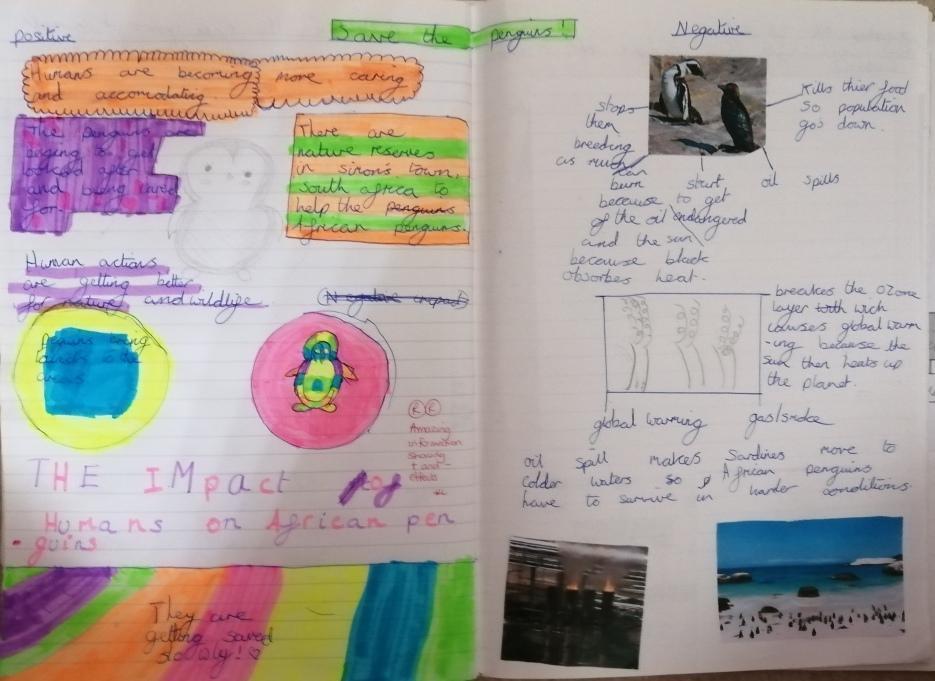 positive
Save the penguins!
Humans are becoming more caring
and accomodating.
The penguins are
beging to get
looked after
and being cared
for.
There are
nature reserves
in simon's town,
south africa to
help the penguins
African penguins.
Human actions
are getting better
for nature and wildlife.
bring
tourists to the
areas
Amazing
information
showing
effects
THE IMpact of
Humans on African pen
guins
They are
getting saved
slowly!
Negative
stops
them
breeding
as much
Kills thier food
so population
go's down.
can
burn
because
of the oil
and the sun
because black
obsorbes heat.
start
to get
endangered
oil spills
breakes the ozone
layer wich
causes global warm
-ing because the
sun then heats up
the planet.
global warming
gas/smoke
oil spill makes Sardines move to
colder waters so African penguins
have to survive in harder conditions.